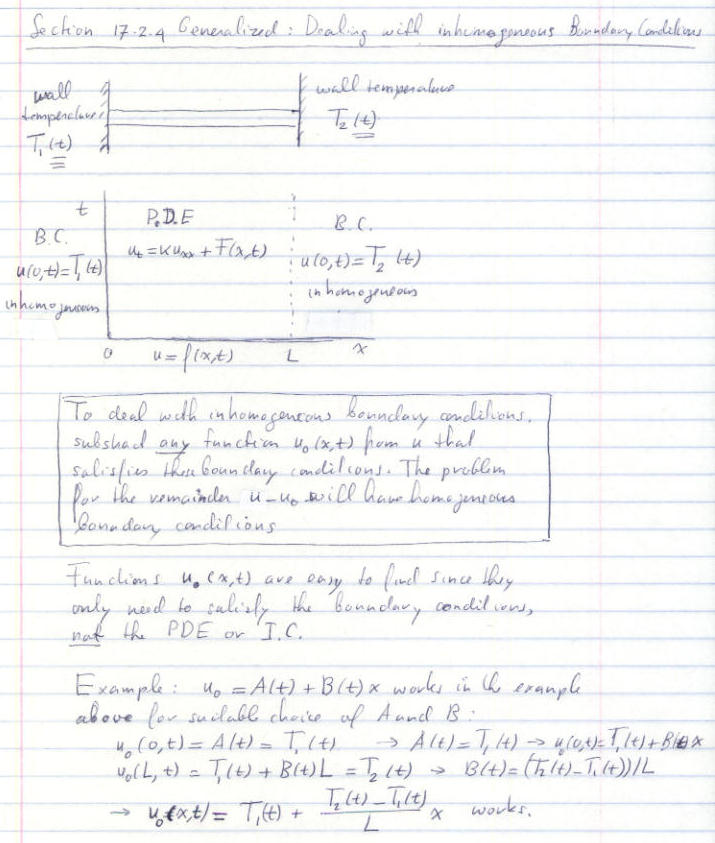 Section 17.2.4 Generalized: Dealing with inhomogeneous Boundary Conditions
wall
temperature:
T₁(t)
wall temperature
T₂(t)
t
P.D.E
B.C.
B.C.
u(0,t)=T₁(t)
uₜ=κuₓₓ + F(x,t)
u(0,t)=T₂(t)
inhomogeneous
inhomogeneous
0
u=f(x,t)
L
x
To deal with inhomogeneous boundary conditions,
substract any function u₀(x,t) from u that
satisfies these boundary conditions. The problem
for the remainder u-u₀ will have homogeneous
boundary conditions
Functions u₀(x,t) are easy to find since they
only need to satisfy the boundary conditions,
not the PDE or I.C.
Example: u₀ = A(t) + B(t)x works in the example
above for suitable choice of A and B:
u₀(0,t) = A(t) = T₁(t) → A(t)=T₁(t) → u₀(0,t)=T₁(t)+B(t)x
u₀(L,t) = T₁(t) + B(t)L = T₂(t) → B(t)=(T₂(t)-T₁(t))/L
→ u₀(x,t) = T₁(t) + (T₂(t)-T₁(t))/L x works.